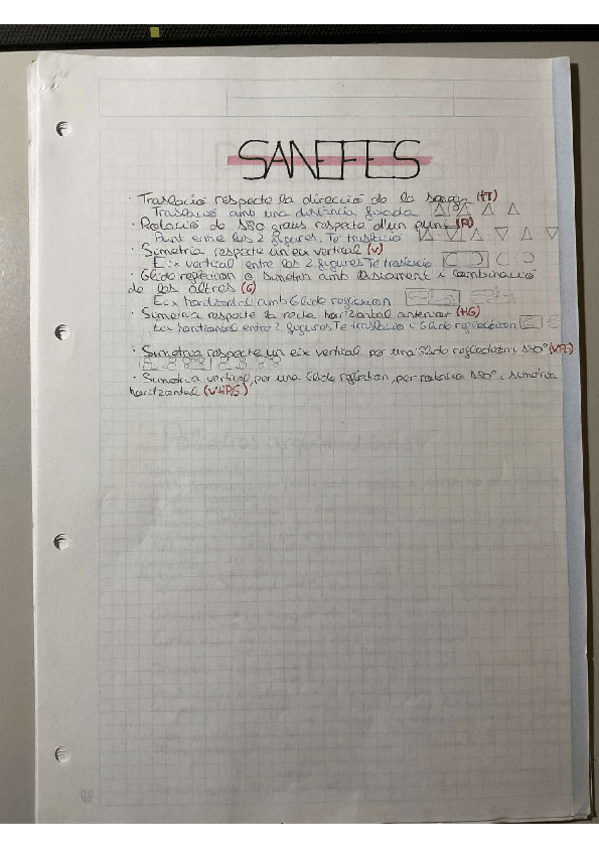 SANEFES
· Traslació respecte la direcció de la (HT)
Traslació amb una distància fixada
· Rotació de 180 graus respecte d'un punt (R)
Punt entre les 2 figures. Té traslació
· Simetria respecte un eix vertical (V)
Eix vertical entre les 2 figures Té traslació
· Glide reflexion o simetria amb i combinació
de les altres (G)
Eix horitzontal amb Glide reflexion
· Simetria respecte la recta horitzontal anterior (HG)
horitzontal entre 2 figures Té traslació i Glide reflection
· Simetria respecte un eix vertical per una Glide reflection i 180° (VRG)
· Simetria vertical, per una Glide reflection, per rotació 180° i simetria
horitzontal (VHRG)